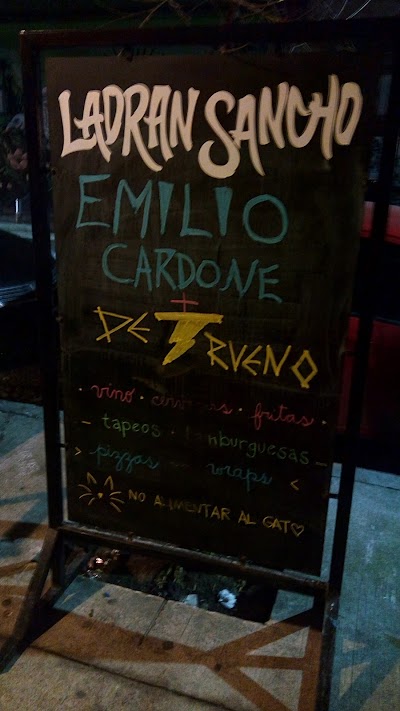 LADRAN SANCHO
EMILIO
CARDONE
+
DE TRVENO
· vino · cervezas · fritas ·
- tapeos · hamburguesas -
> pizzas wraps <
NO ALIMENTAR AL GATO